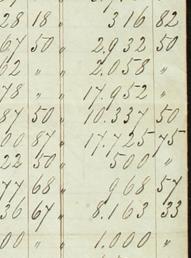 28 18 " 316 82
67 50 " 2.932 50
62 " " 2.058 "
78 " " 17.952 "
87 50 " 10.337 50
00 87 " 17.725 75
22 50 " 500 "
77 68 " 968 57
36 67 " 8.163 33
00 " " 1.000 "